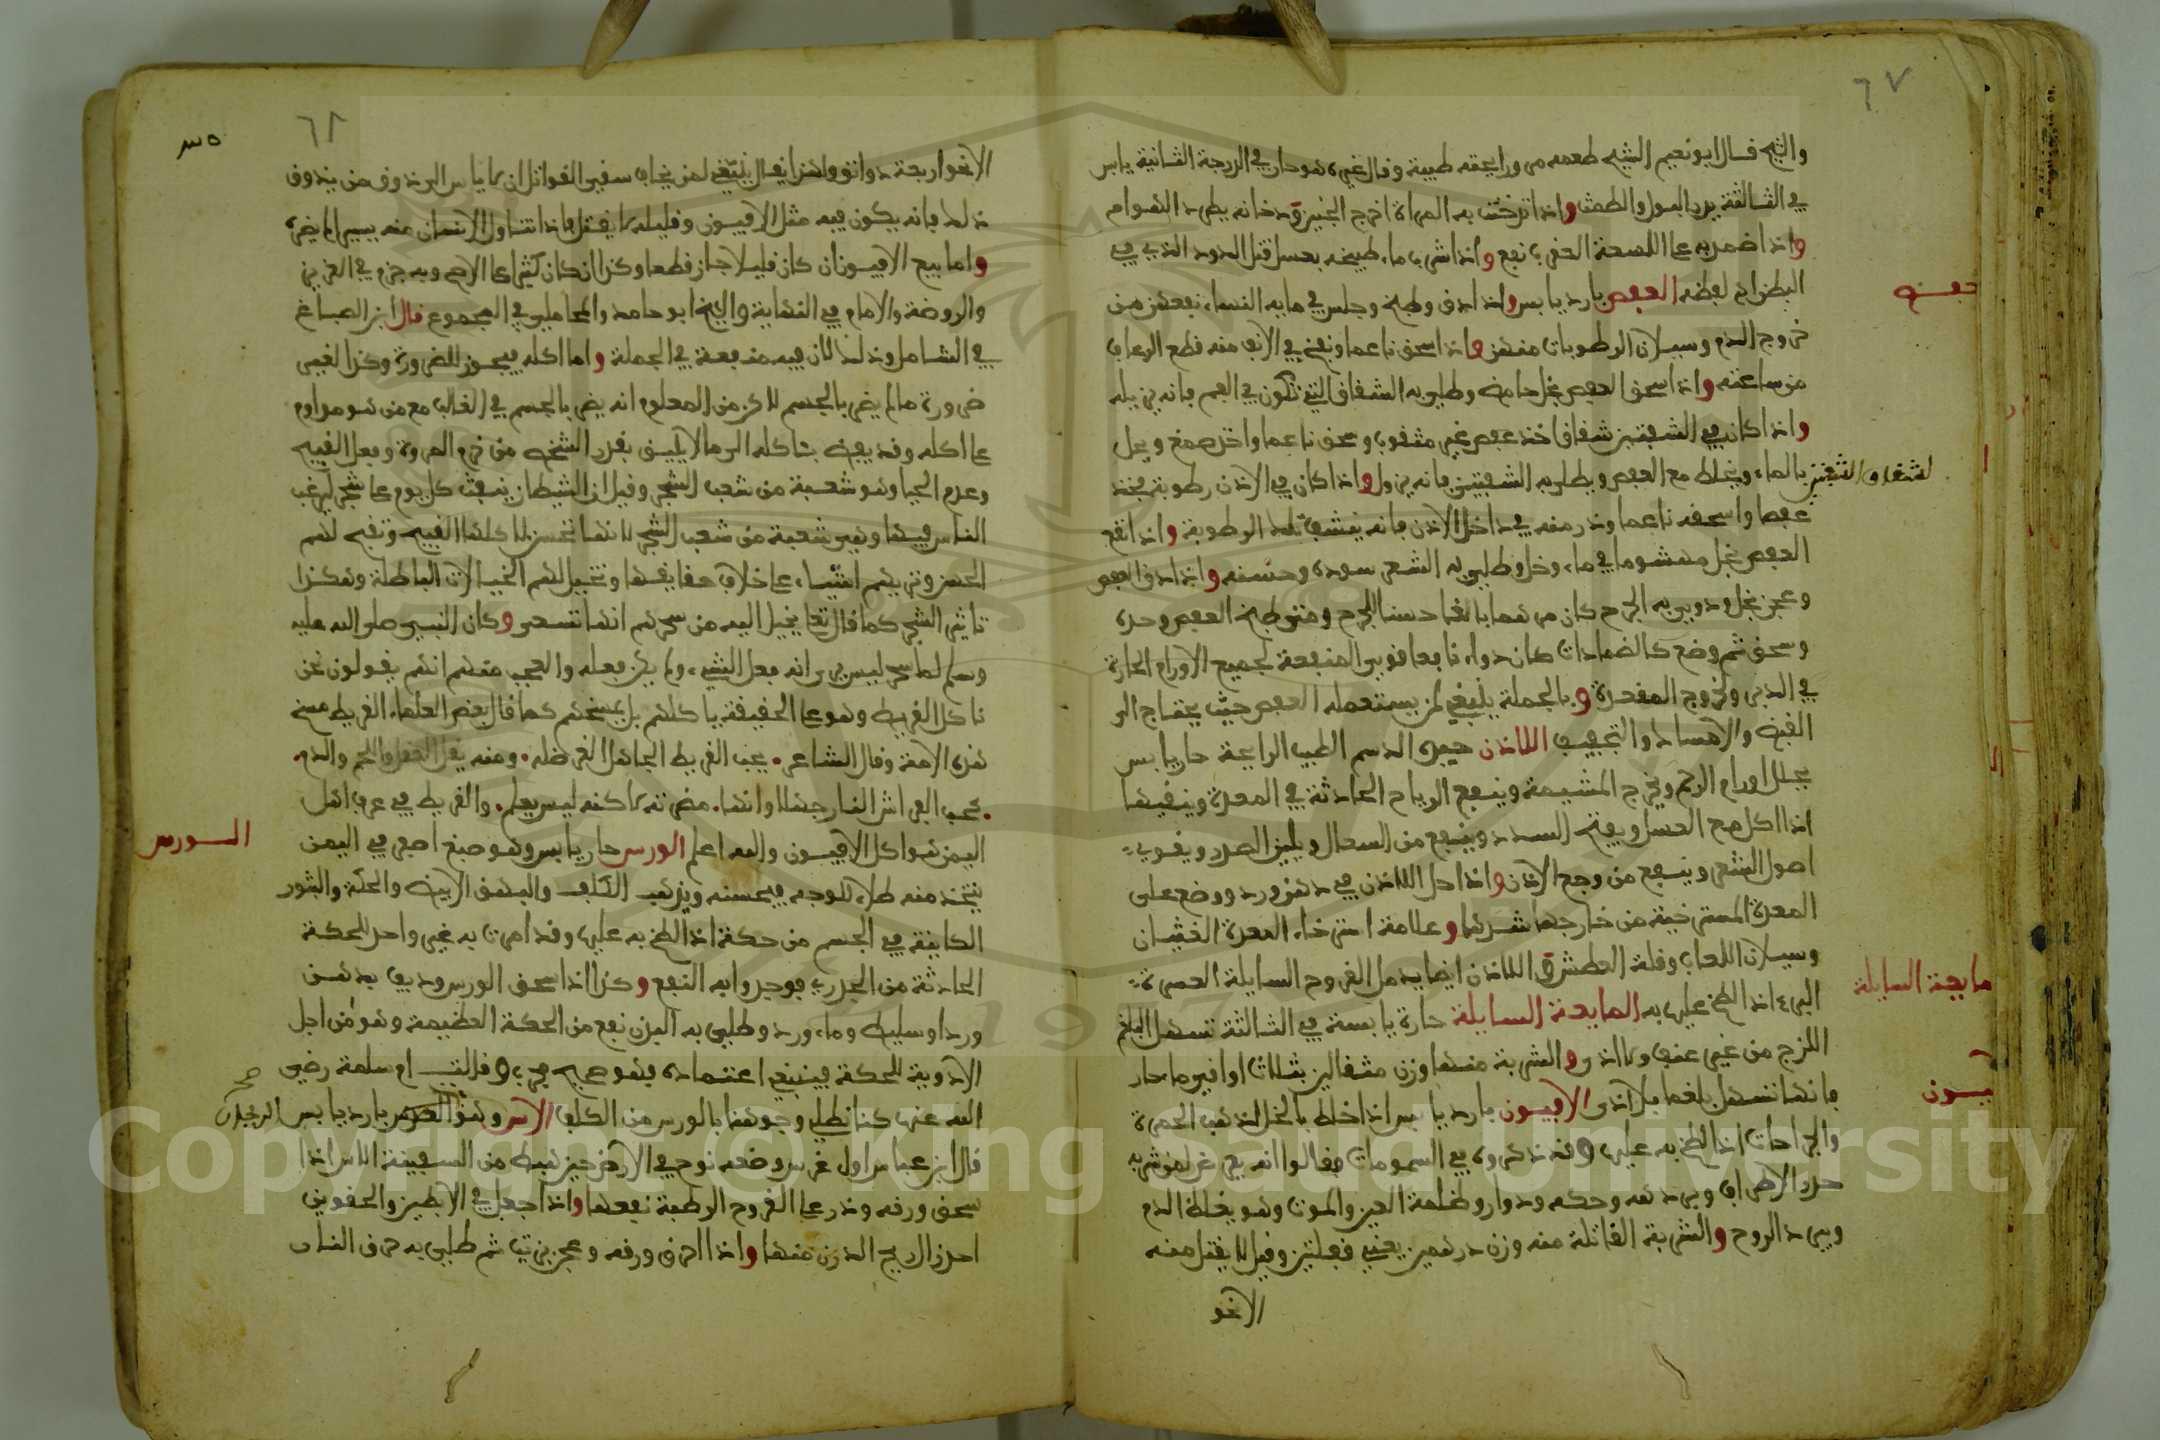 ٦٧
والشيح قال ابو نعيم الشيح طعمه مر ورايحته طيبة وقال غيره هو حار في الدرجة الثانية يابس
في الثالثة يدر البول والطمث واذا تدخنت به المراة اخرج الجنين ودخانه يطرد الهوام
واذا ضمد به على اللسعة العقرب نفع واذا شرب ماء طبيخه بعسل قتل الدود الذي في
البطن العفص بارد يابس واذا دق وطبخ وجلس في مايه النساء نفعهن من
خروج الدم وسيلان الرطوبات منهن واذا سحق ناعما ونفخ في الانف منه قطع الرعاف
من ساعته واذا سحق العفص بخل حامض وطلي به الشقاق التي تكون في الفم فانه يزيله
واذا كان في الشفتين شقاق اخذ عفص غير مثقوب وسحق ناعما واخذ صمغ ويحل
لشقاق الشفتين
بالماء ويخلط مع العفص ويطلى به الشفتين فانه يزول واذا كان في الاذن رطوبة يوخذ
عفصا واسحقه ناعما وذر منه في داخل الاذن فانه ينشف تلك الرطوبة واذا نقع
العفص بخل مهشوما في ماء وخل وطلي به الشعر سوده وحسنه واذا دق العفص
وعجن بخل ودوي به الجرح كان مرهما بالغا حسنا للجرح ومتى طبخ العفص وحده
وسحق ثم وضع كالضمادات كان دواء نافعا قوي المنفعة لجميع الاورام الحارة
في الدبر ولخروج المقعدة وبالجملة ينبغي لمن يستعمله العفص حيث يحتاج الى
القبض والامساك والتجفيف اللاذن جيده الدسم الطيب الرايحة حار يابس
يحلل اورام الرحم ويخرج المشيمة وينفع الرياح الحادثة في المعدة وينقيها
اذا اكل مع العسل ويفتح السدد وينفع من السعال ويلين الصدر ويقوي
اصول الشعر وينفع من وجع الاذن واذا حل اللاذن في دهن ورد ووضع على
المعدة المسترخية من خارجها شدها وعلامة استرخاء المعدة الغثيان
وسيلان اللعاب وقلة العطش واللاذن ايضا يدمل القروح السايلة العسرة
البرء اذا لطخ عليها به المايعة السايلة حارة يابسة في الثالثة تسهل البلغم
مايعة السايلة
اللزج من غير عنف ولا اذى والشربة منها وزن مثقالين بثلاث اواقي ماء حار
فانها تسهل بلغما بلا اذى الافيون بارد يابس اذا خلط بالخل اذهب الحمرة
والجراحات اذا لطخ به عليها وقد ذكروه في السمومات وقالوا انه يعرض لمن شربه
خدر الاطراف وبردها وحكة ودوار وظلمة العين والموت وهو يغلظ الدم
ويبرد الروح والشربة القاتلة منه وزن درهمين يعني قفلتين وقيل لا يقتل منه
الا نحو
٦٨
الا نحو اربعة دوانق ولهذا يقال ينبغي لمن يخاف سقي القواتل ان لا ياس الى ذوق من يذوق
ذلك فانه يكون فيه مثل الافيون وقليله لا يقتل فاذا تناول الانسان منه يسير لم يضره
واما بيع الافيون ان كان قليلا جاز قطعا وكذا ان كان كثيرا على الاصح وبه جزم في العزيز
والروضة والامام في النهاية والشيخ ابو حامد والمحاملي في المجموع قال ابن الصباغ
في الشامل وذلك لان فيه منفعة في الجملة واما اكله فيجوز للضرورة وكذا لغير
ضرورة ما لم يضر بالجسم لاكن من المعلوم انه يضر بالجسم في الغالب مع من هو مداوم
على اكله وقد يفضي بتاكله الى ما لا يليق بقدر الشخص من خرم المروة وفعل القبيح
وعدم الحيا وهو شعبة من شعب السحر وقيل ان الشيطان ينفث كل يوم على شجر ليرغب
الناس فيها وهي شعبة من شعب السحر لانها تحسن لاكلها القبيح وتقبح لهم
الحسن وتريهم اشياء على خلاف حقايقها وتخيل لهم الخيالات الباطلة وهكذا
تاثير السحر كما قال تعالى يخيل اليه من سحرهم انها تسعى وكان النبي صلى الله عليه
وسلم لما سحر لبيس يرى انه فعل الشيء ولم يكن فعله والعجب منهم انهم يقولون نحن
ناكل القريط وهو على الحقيقة ياكلهم بل يمسخهم كما قال بعض العلماء القريط مسخ
هذه الامة وقال الشاعر يحب القريط الجاهل القرظله ومنه يقل العقل واللحم والدم
يحب الفراش النار جهلا وانها مضرته لاكنه ليس يعلم والقريط في عرف اهل
اليمن هو اكل الافيون والله اعلم الورس حار يابس وهو صبغ اصفر في اليمن
الورس
يتخذ منه طلاء للوجه فيحسنه ويذهب الكلف والبهق الابيض والحكة والبثور
الكاينة في الجسم من حكة اذا لطخ به عليها وقد امرت به غير واحد للحكة
الحادثة من الجدري فوجدوا به النفع وكذا اذا سحق الورس وديف بدهن
ورد او سليط وماء ورد وطلي به البدن نفع من الحكة العظيمة وهو من اجل
الادوية للحكة فينبغي اعتماده فهو صحيح مجرب وقالت ام سلمة رضي
الله عنها كنا نطلي وجوهنا بالورس من الكلف الاس وهو بارد يابس
الريحان صح
قال ابن عباس اول غرس وضعه نوح في الارض حين هبط من السفينة الاس اذا
سحق ورقه وذر على القروح الرطبة نفعها واذا جعل في الابطين والحقوين
اخذ الريح الدرن منها واذا احرق ورقه وعجن بزيت ثم طلي به حرق النار